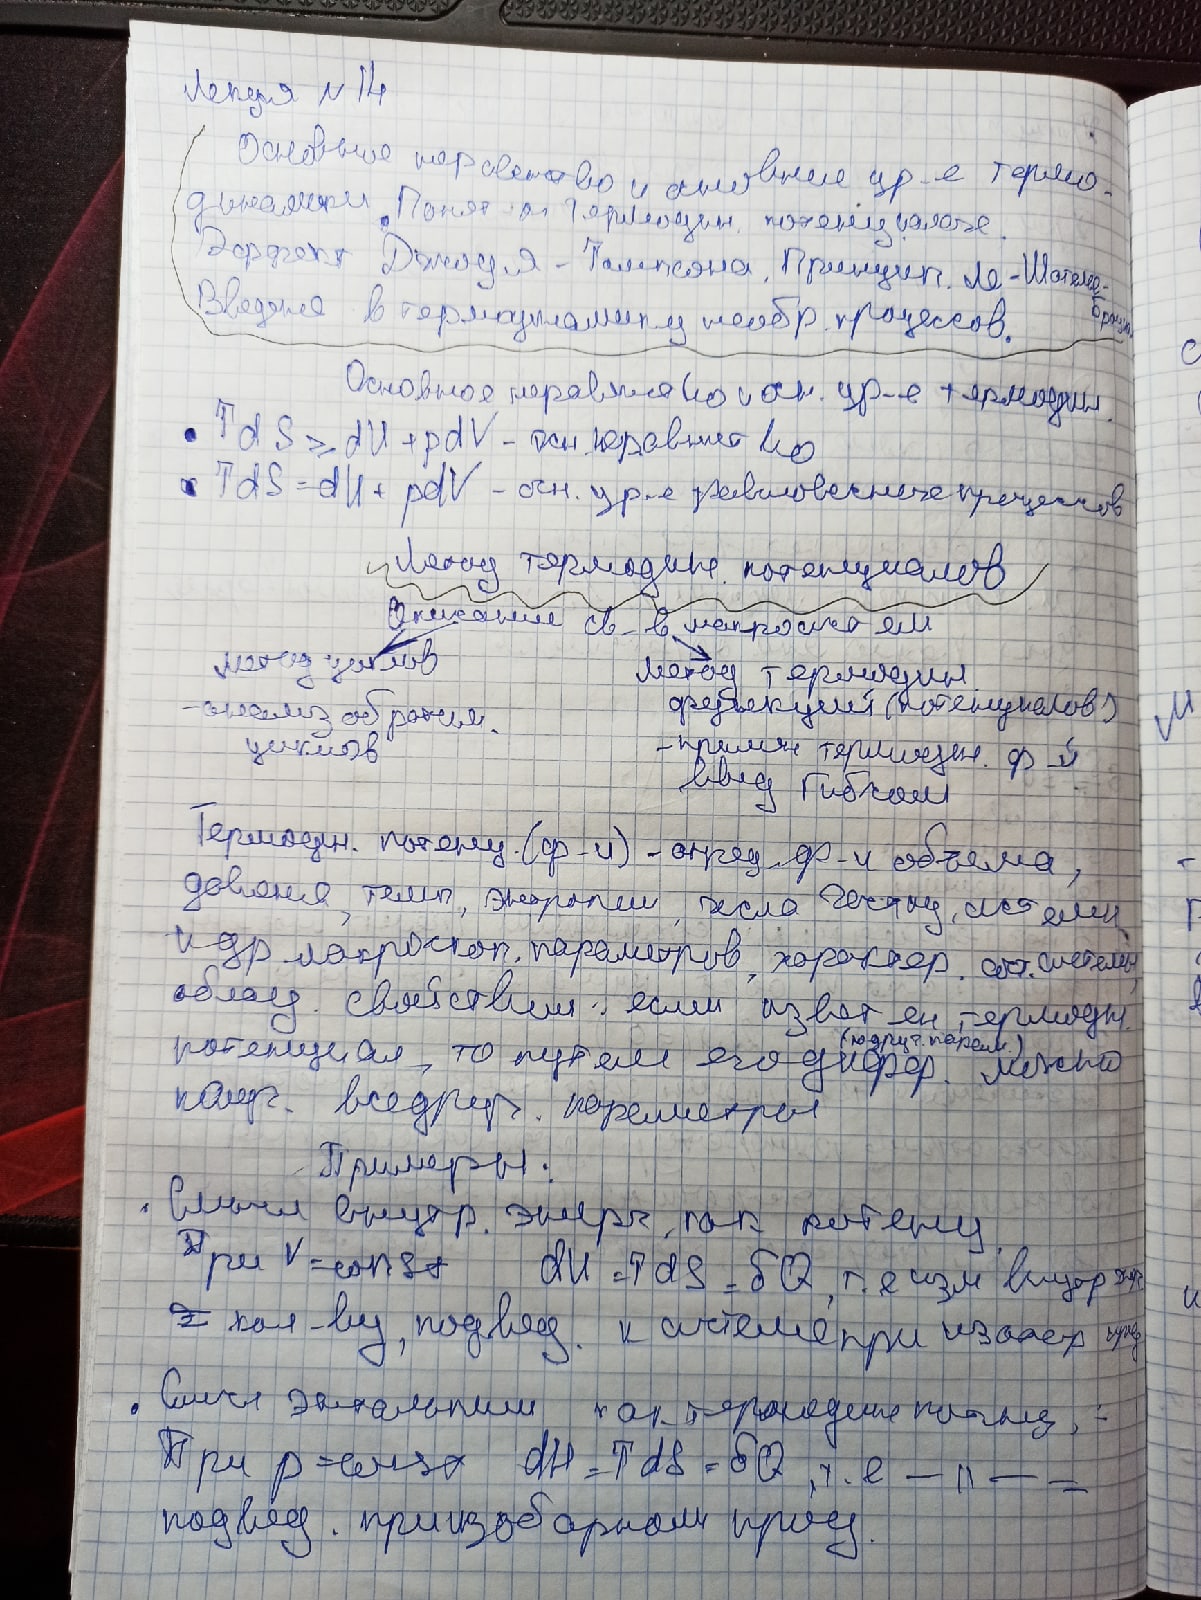 Лекция N 14
Основные неравенство и основные ур-е термо-
динамики. Понят-я термодин. потенциалов.
Эффект Джоуля - Томпсона. Принцип Ле-Шателье-
Брауна.
Введение в термодинамику необр. процессов.
Основное неравенство и осн. ур-е термодин.
• TdS ≥ dU + pdV - осн. неравенство
• TdS = dU + pdV - осн. ур-е равновесных процессов
Метод термодин. потенциалов
Описание св-в макросистем
метод циклов
- анализ обратим.
циклов
Метод термодин
функций (потенциалов)
- примен термодин. ф-й
введ Гиббсом
Термодин. потенц. (ф-и) - опред. ф-и объема,
давления, темп, энтропии, числа частиц системы
и др макроскоп. параметров, характер. сост. системы,
облад. свойством: если известен термодин.
потенциал, то путем его дифф. (по друг. парам) можно
получ. все друг. параметры
Примеры:
• Смысл внутр. энерг. как потенц.
При V = const dU = TdS = δQ, т.е изм внутр энер
= кол-ву, подвед. к системе при изохор проц
• Смысл энтальпии как термодин потенц.
При p = const dH = TdS = δQ, т.е — 〃 — =
подвед. при изобарном проц.